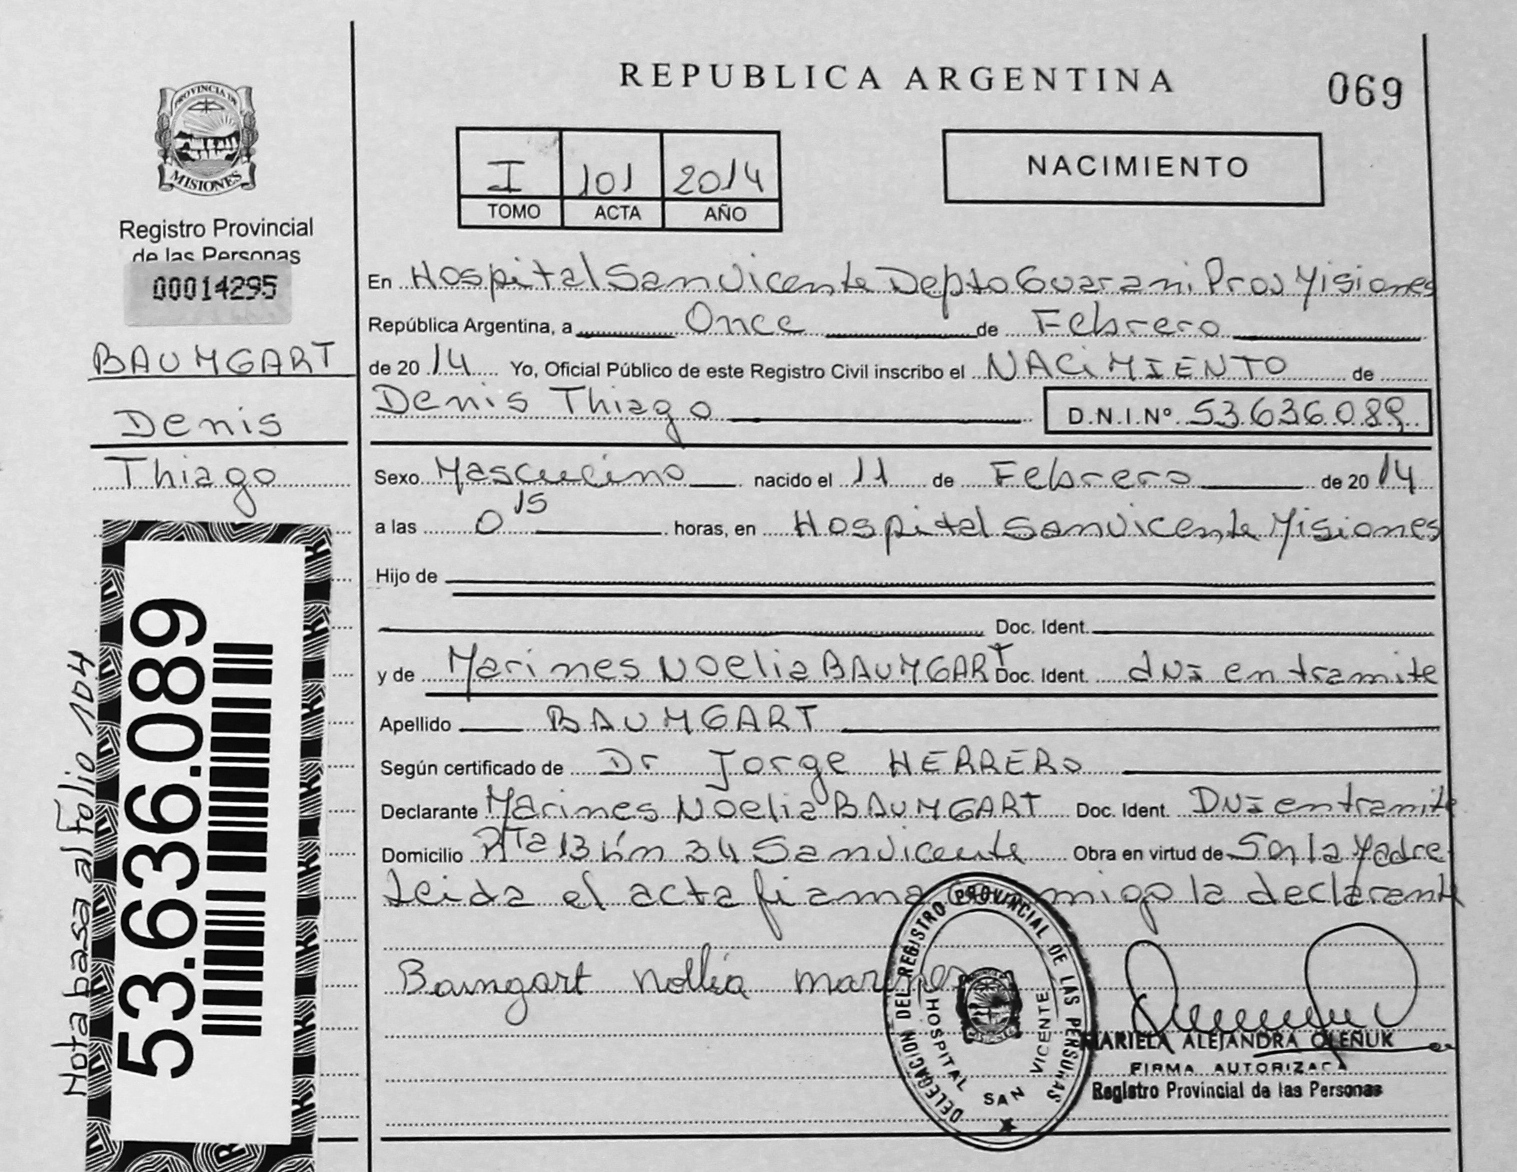 REPUBLICA ARGENTINA
069
PROVINCIA DE
MISIONES
Registro Provincial
de las Personas
00014295
I 101 2014
TOMO ACTA AÑO
NACIMIENTO
BAUMGART
Denis
Thiago
53.636.089
Nota basa al Folio 104
En Hospital San Vicente Depto Guarani Prov Misiones
República Argentina, a Once de Febrero
de 2014 Yo, Oficial Público de este Registro Civil inscribo el NACIMIENTO de
Denis Thiago D.N.I.Nº 53.636.089
Sexo Masculino nacido el 11 de Febrero de 2014
a las 0 15 horas, en Hospital San Vicente Misiones
Hijo de
Doc. Ident.
y de Marines Noelia BAUMGART Doc. Ident. dni en tramite
Apellido BAUMGART
Según certificado de Dr Jorge HERRERO
Declarante Marines Noelia BAUMGART Doc. Ident. DNI en tramite
Domicilio Rta 13 km 34 San Vicente Obra en virtud de Ser la Madre
Leida el acta firma migo la declarante
Baumgart Nollia marines
DELEGACION DEL REGISTRO PROVINCIAL DE LAS PERSONAS
HOSPITAL SAN VICENTE
MARIELA ALEJANDRA OLEÑUK
FIRMA AUTORIZADA
Registro Provincial de las Personas